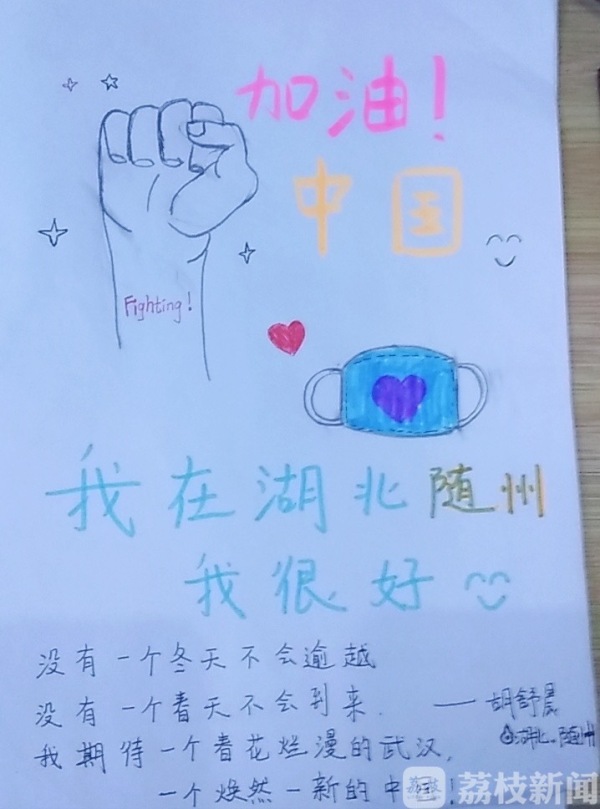 加油！
中国
Fighting!
我在湖北随州
我很好
没有一个冬天不会逾越
没有一个春天不会到来. ——胡舒晨
@湖北。随州
我期待一个春花烂漫的武汉,
一个焕然一新的中
荔枝新闻